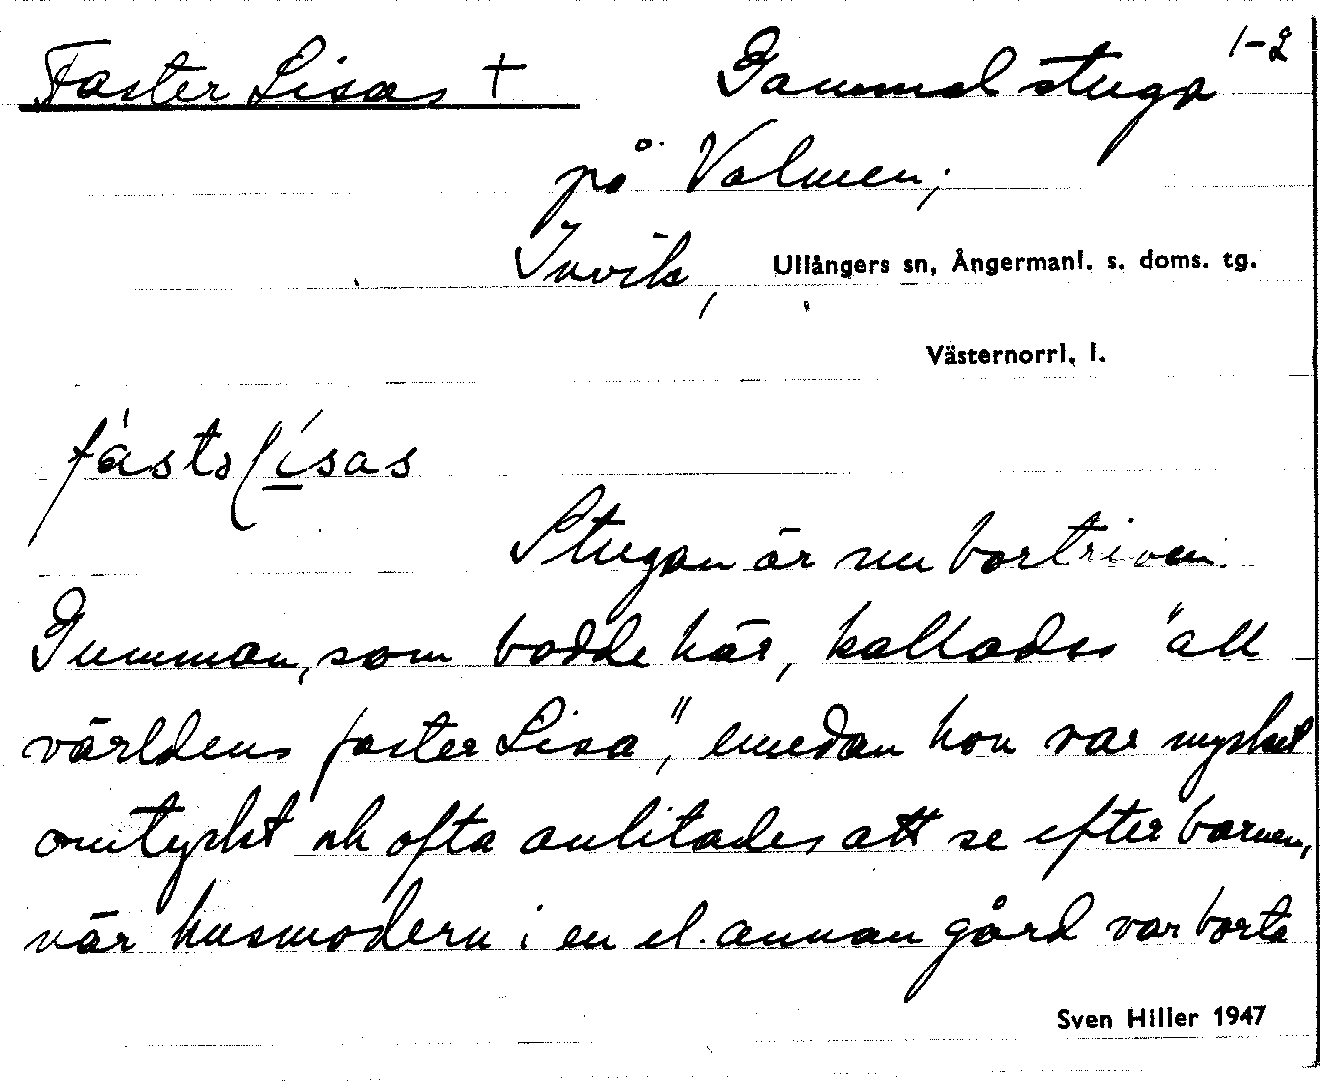 Faster Lisas + Gammal stuga 1-2
på Valmen;
Invik, Ullångers sn, Ångermanl. s. doms. tg.
Västernorrl. l.
fàstəlísas
Stugan är nu bortriven.
Gumman, som bodde här, kallades "all
världens faster Lisa", emedan hon var mycket
omtyckt och ofta anlitades att se efter barnen,
när husmodern i en el. annan gård var borta
Sven Hiller 1947